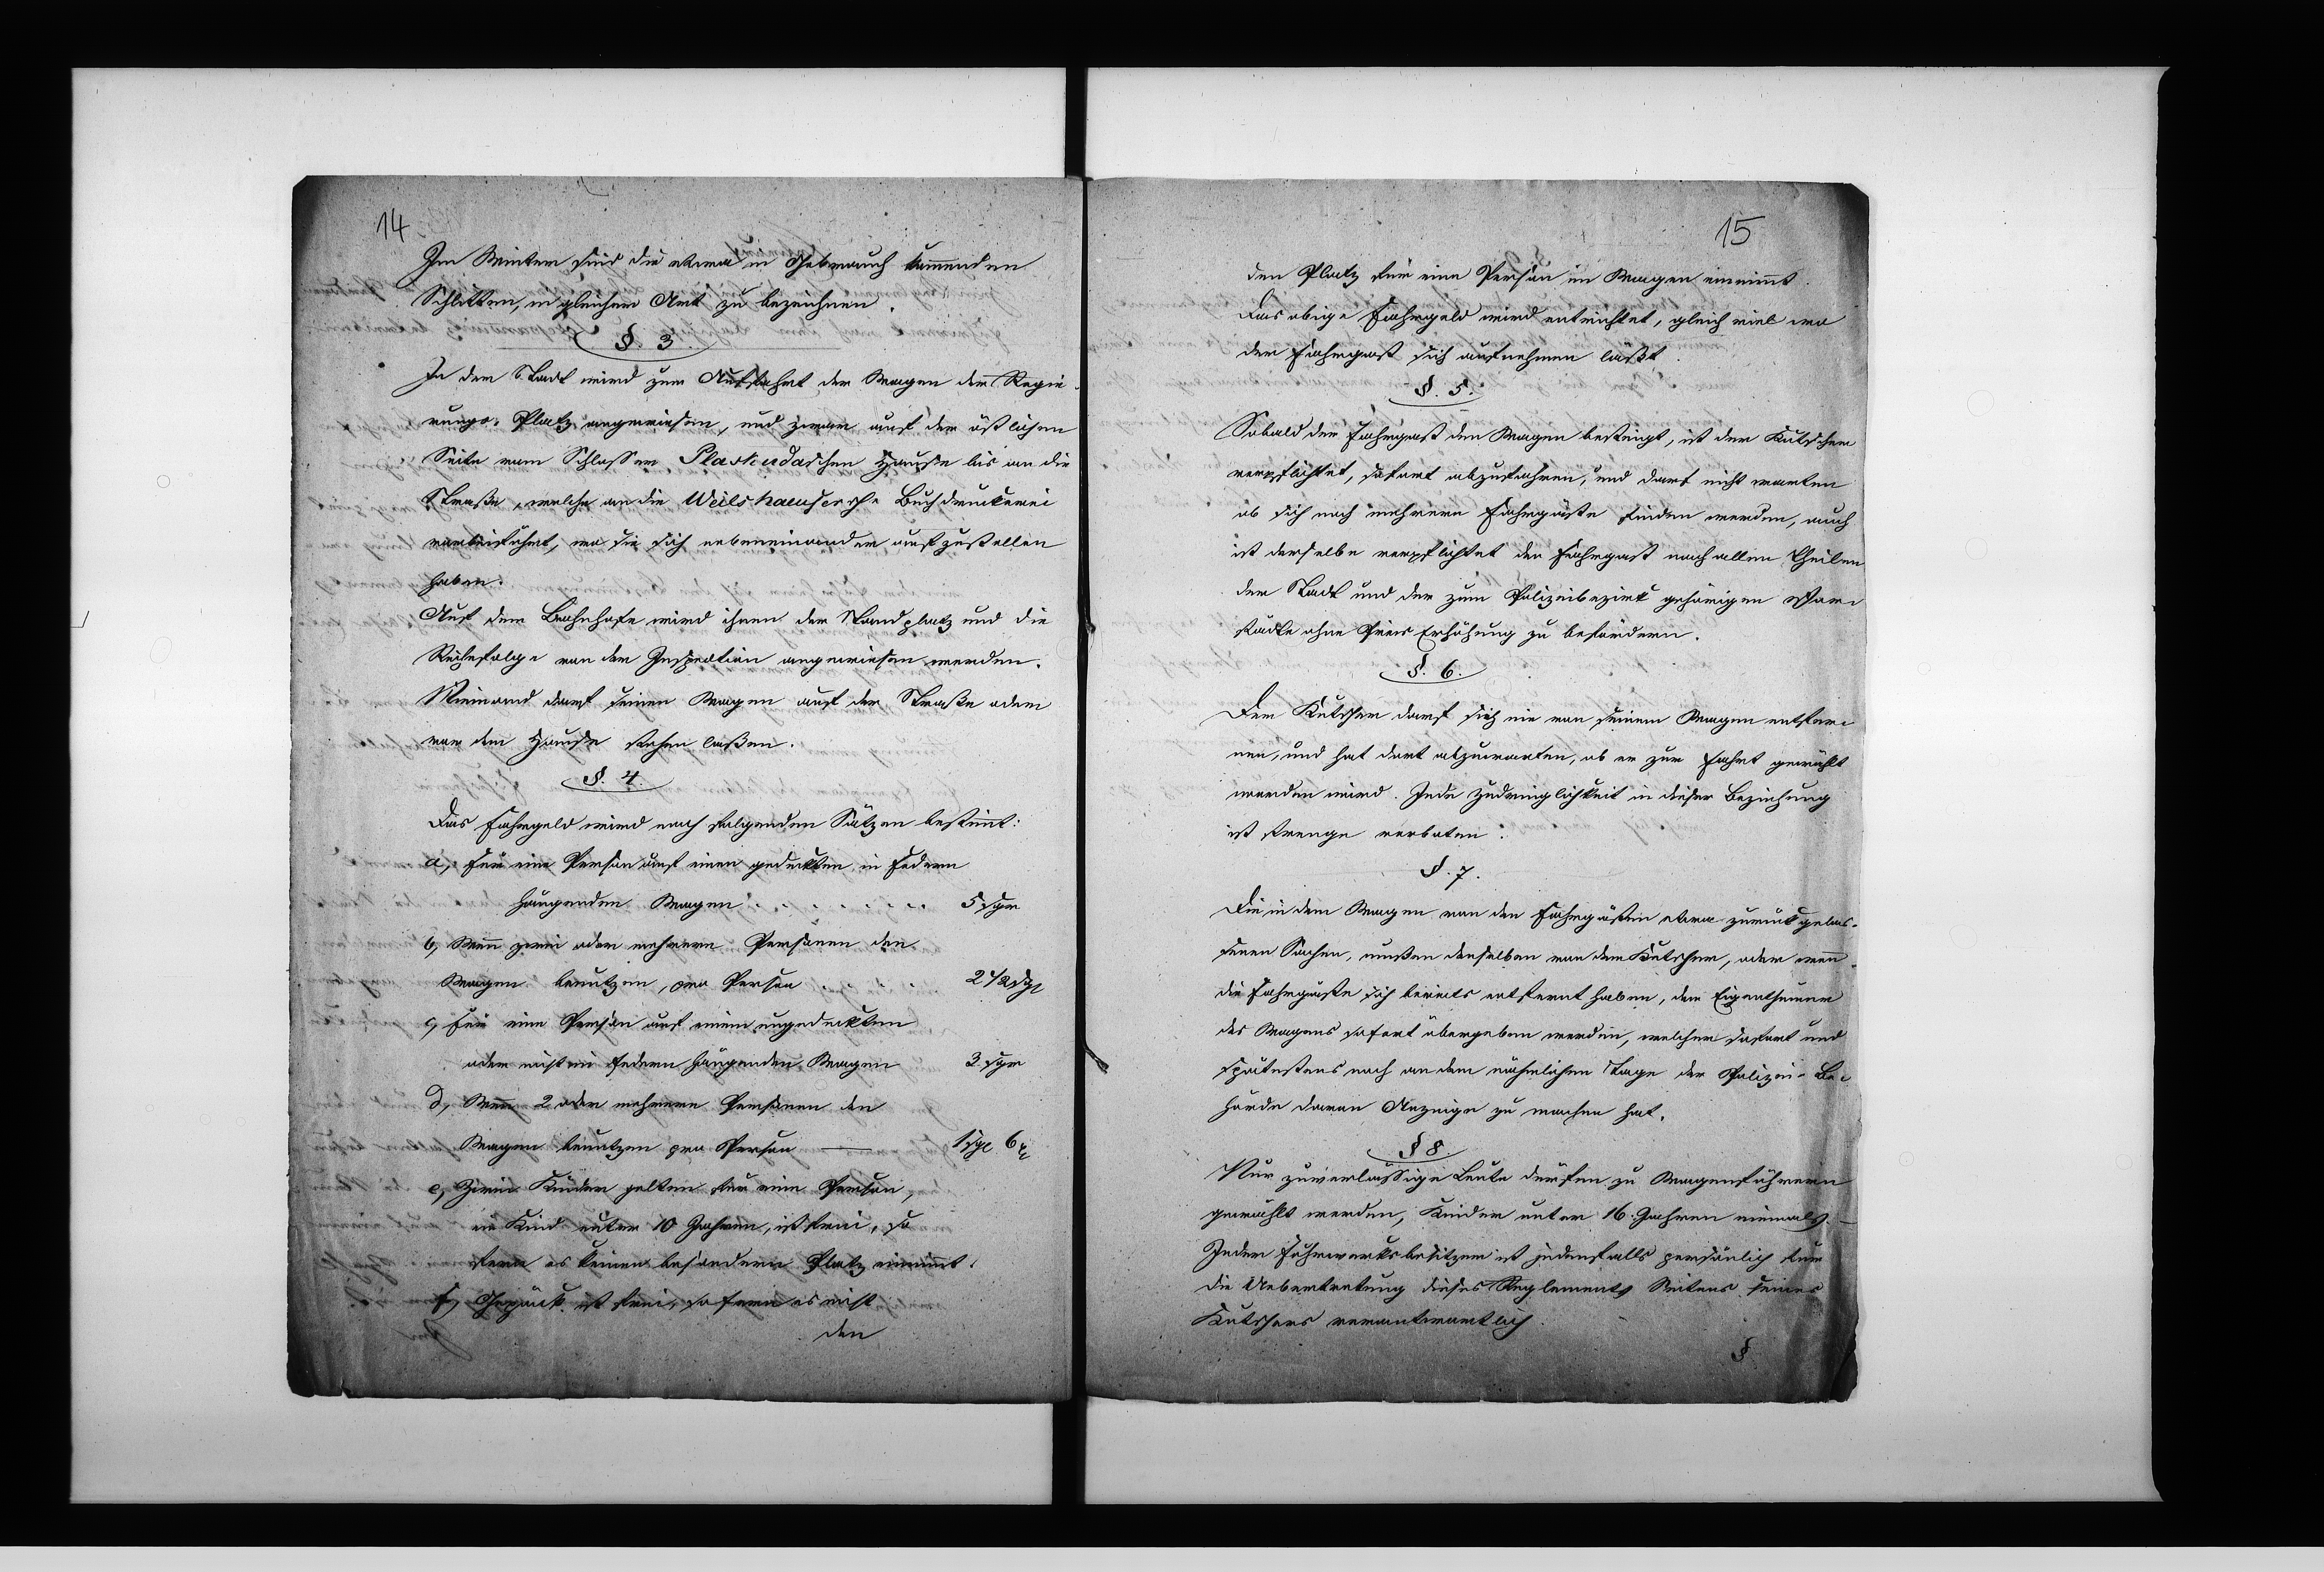 14
Im Winter sind die etwa in Gebrauch kommenden
Schlitten, in gleicher Art zu bezeichnen.
§. 3.
In der Stadt wird zur Auffahrt der Wagen der Regie-
rungs-Platz angewiesen, und zwar auf der östlichen
Seite vom Schlosser Plaskudaschen Hause bis an die
Straße, welche an die Weilshaeusersche Buchdruckerei
vorbeiführt, wo sie sich nebeneinander aufzustellen
haben.
Auf dem Bahnhofe wird ihnen der Standplatz und die
Reihefolge von der Inspection angewiesen werden.
Niemand darf seinen Wagen auf der Straße oder
vor dem Hause stehen laßen.
§. 4.
Das Fahrgeld wird nach folgenden Sätzen bestimt:
a, Für eine Person auf einen gedeckten in Federn
hängenden Wagen 5 sgr
b, Wenn zwei oder mehrere Personen den
Wagen benutzen, pro Person 2 1/2 sgr
c, Für eine Person auf einem ungedeckten
oder nicht in Federn hängenden Wagen 3 sgr
d, Wenn 2 oder mehrere Personen den
Wagen benutzen pro Person — 1 sgr 6 ₰
e, Zwei Kinder gelten für eine Person,
ein Kind unter 10 Jahren, ist frei, so
fern es keinen besondern Platz einnimt.
f, Gepäck ist frei, sofern es nicht
den
15
den Platz für eine Person im Wagen einnimt.
Das obige Fahrgeld wird entrichtet, gleich viel wo
der Fahrgast sich aufnehmen läßt.
§. 5.
Sobald der Fahrgast den Wagen besteigt, ist der Kutscher
verpflichtet, sofort abzufahren, und darf nicht warten
ob sich noch mehrere Fahrgäste finden werden, auch
ist derselbe verpflichtet den Fahrgast nach allen Theilen
der Stadt und der zum Polizeibezirk gehörigen Vor-
städte ohne Preis Erhöhung zu befördern.
§. 6.
Der Kutscher darf sich nie von seinem Wagen entfer-
nen, und hat dort abzuwarten, ob er zur Fahrt gewählt
werden wird. Jede Zudringlichkeit in dieser Beziehung
ist strenge verboten.
§. 7.
Die in dem Wagen von den Fahrgästen etwa zurückgelas-
senen Sachen, müßen denselben von dem Kutscher, oder wenn
die Fahrgäste sich bereits entfernt haben, dem Eigenthümer
des Wagens sofort übergeben werden, welcher sofort und
spätestens noch an dem nähmlichen Tage der Polizei-Be-
hörde davon Anzeige zu machen hat.
§ 8.
Nur zuverlässige Leute dürfen zu Wagenführern
gewählt werden, Kinder unter 16. Jahren niemals. —
Jeder Fuhrwerksbesitzer ist jedenfalls persönlich für
die Uebertretung dieses Reglements Seitens seines
Kutschers verantwortlich.
§